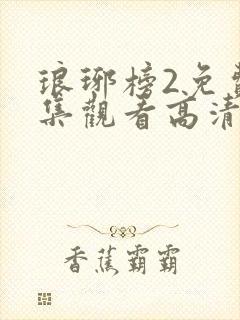 琅琊榜2免費
集觀看高清
香蕉霸霸